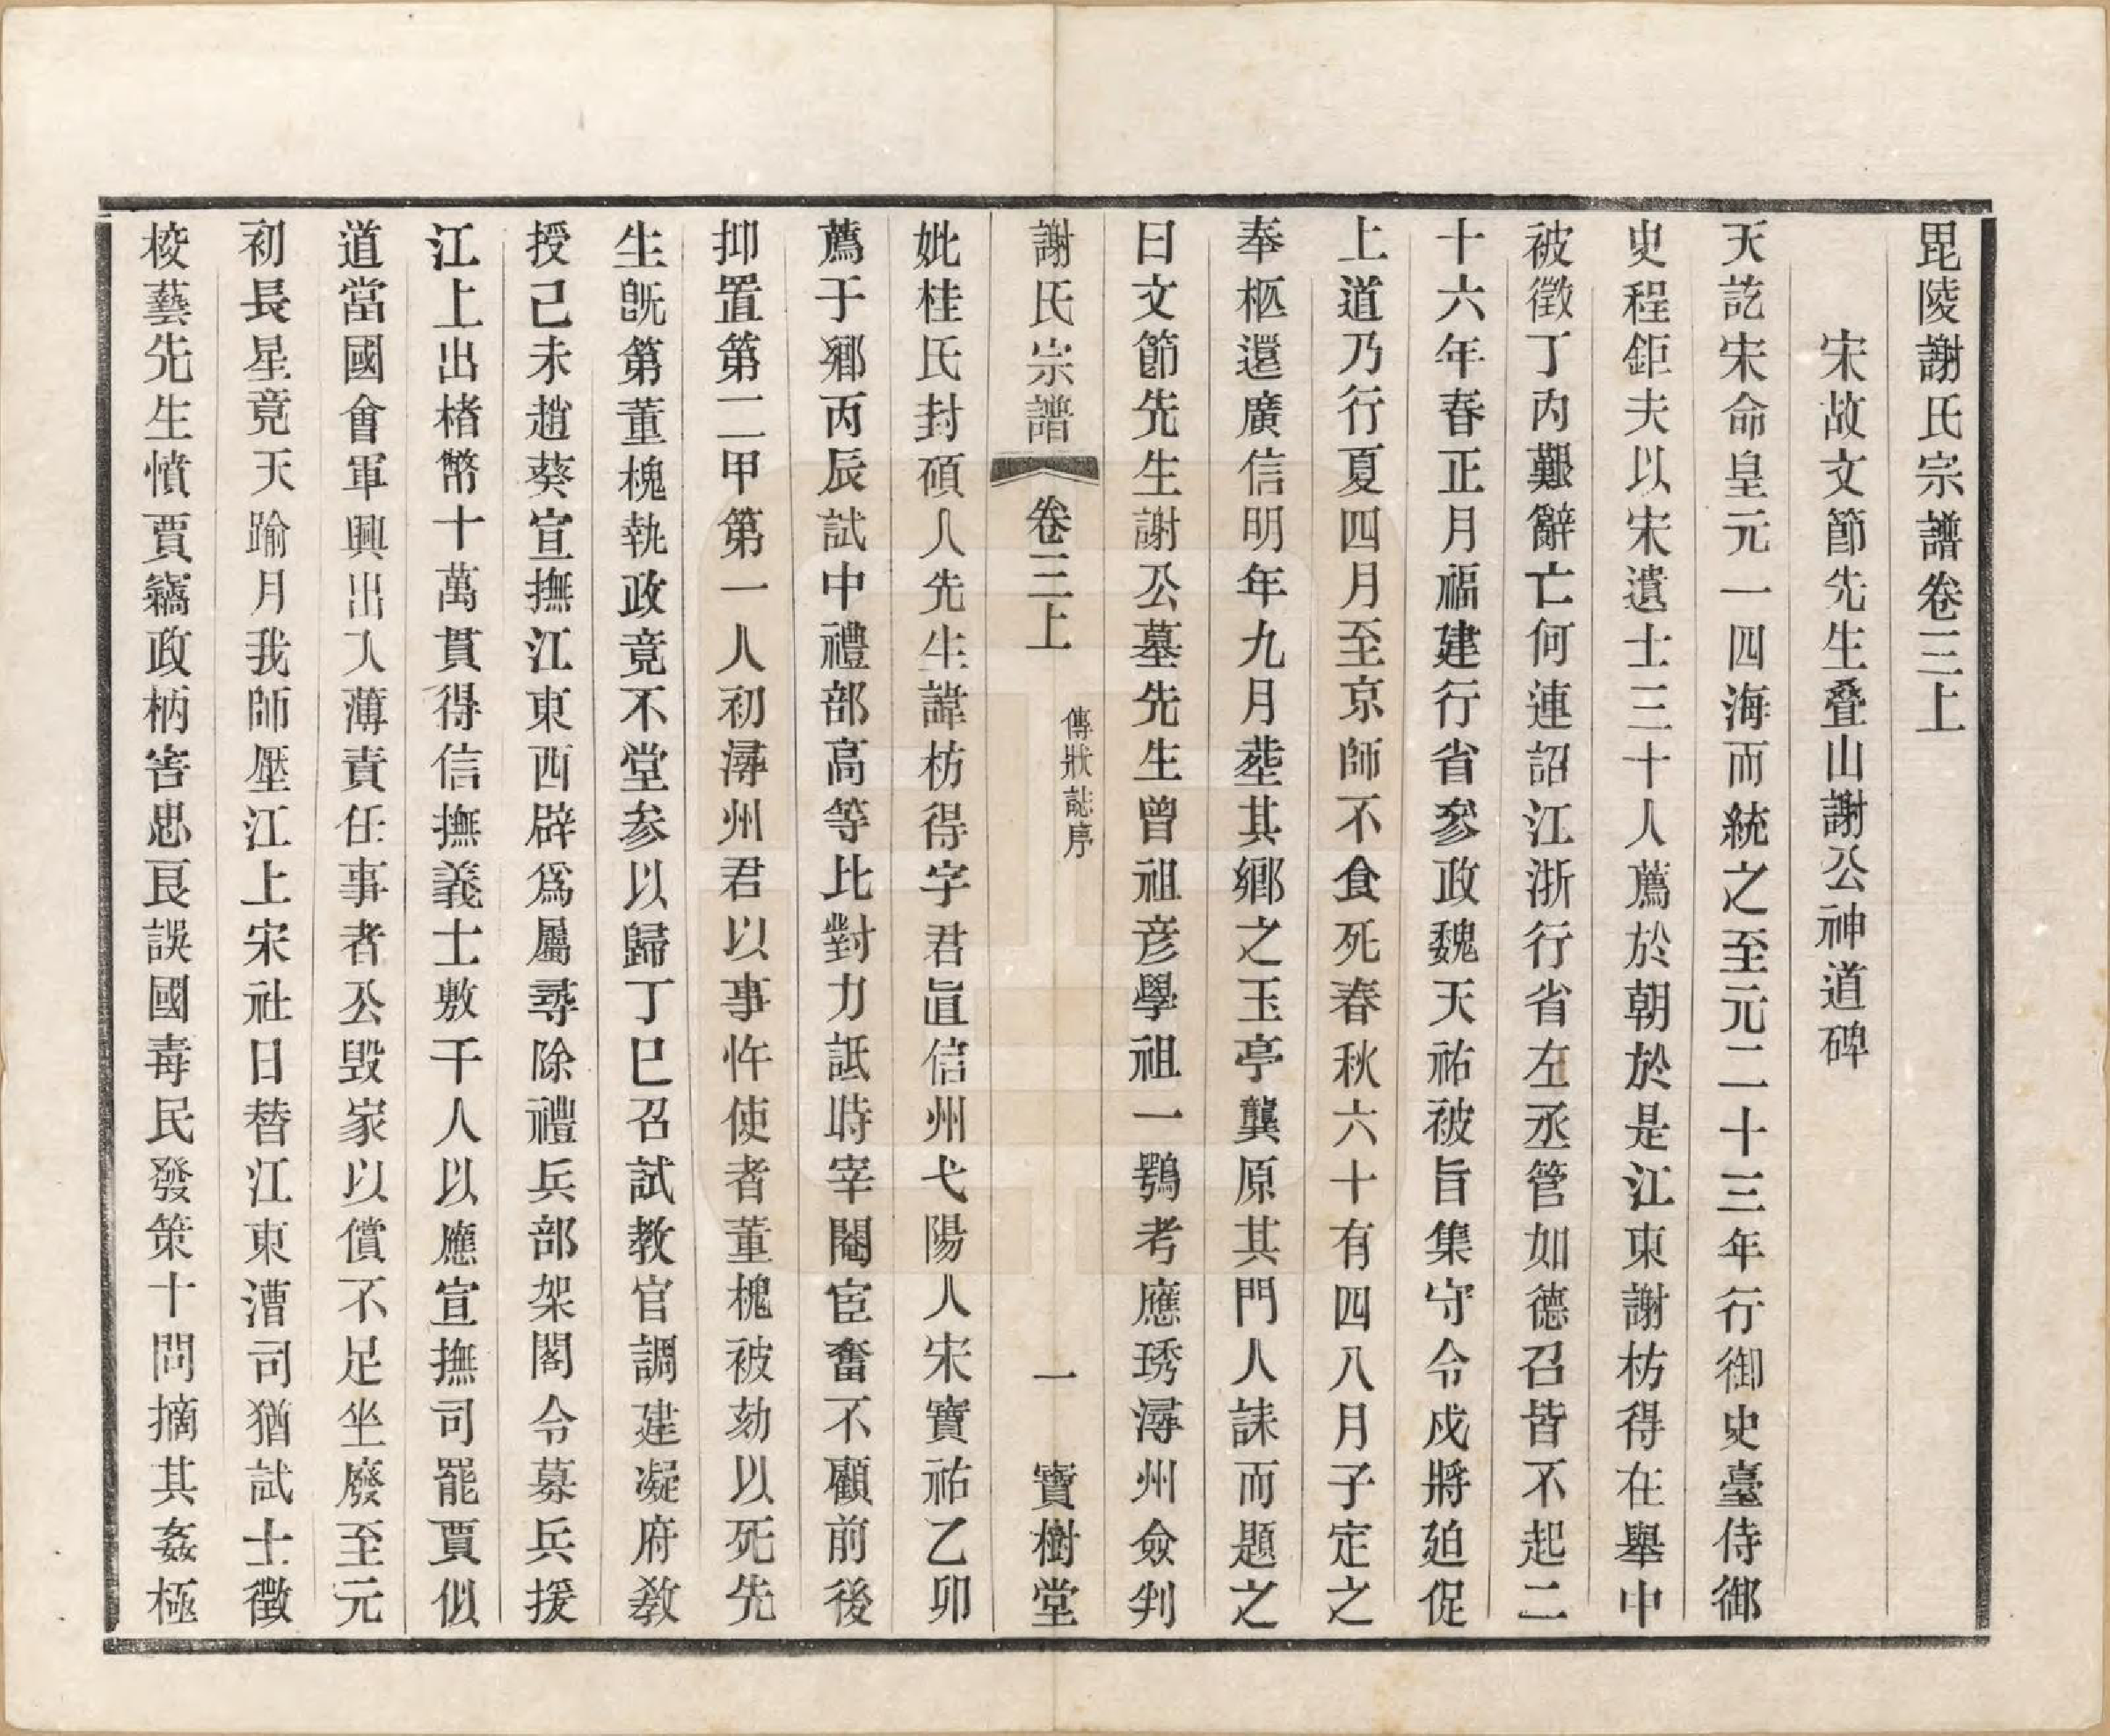 毘陵謝氏宗譜卷三上
宋故文節先生叠山謝公神道碑
天訖宋命皇元一四海而統之至元二十三年行御史臺侍御
史程鉅夫以宋遺士三十人薦於朝於是江東謝枋得在舉中
被徵丁内艱辭亡何連詔江浙行省左丞管如德召皆不起二
十六年春正月福建行省參政魏天祐被旨集守令戍將迫促
上道乃行夏四月至京師不食死春秋六十有四八月子定之
奉柩還廣信明年九月塟其鄉之玉亭龔原其門人誄而題之
曰文節先生謝公墓先生曾祖彦學祖一鶚考應琇潯州僉判
謝氏宗譜 卷三上 傳狀誌序 一 寶樹堂
妣桂氏封碩人先生諱枋得字君直信州弋陽人宋寶祐乙卯
薦于鄉丙辰試中禮部高等比對力詆時宰閹宦奮不顧前後
抑置第二甲第一人初潯州君以事忤使者董槐被劾以死先
生旣第董槐執政竟不堂参以歸丁巳召試教官調建凝府敎
授己未趙葵宣撫江東西辟爲屬尋除禮兵部架閣令募兵援
江上出楮幣十萬貫得信撫義士敷千人以應宣撫司罷賈似
道當國會軍興出入薄責任事者公毁家以償不足坐廢至元
初長星竟天踰月我師壓江上宋社日替江東漕司猶試士徵
校藝先生憤賈竊政柄害忠良誤國毒民發策十問摘其姦極